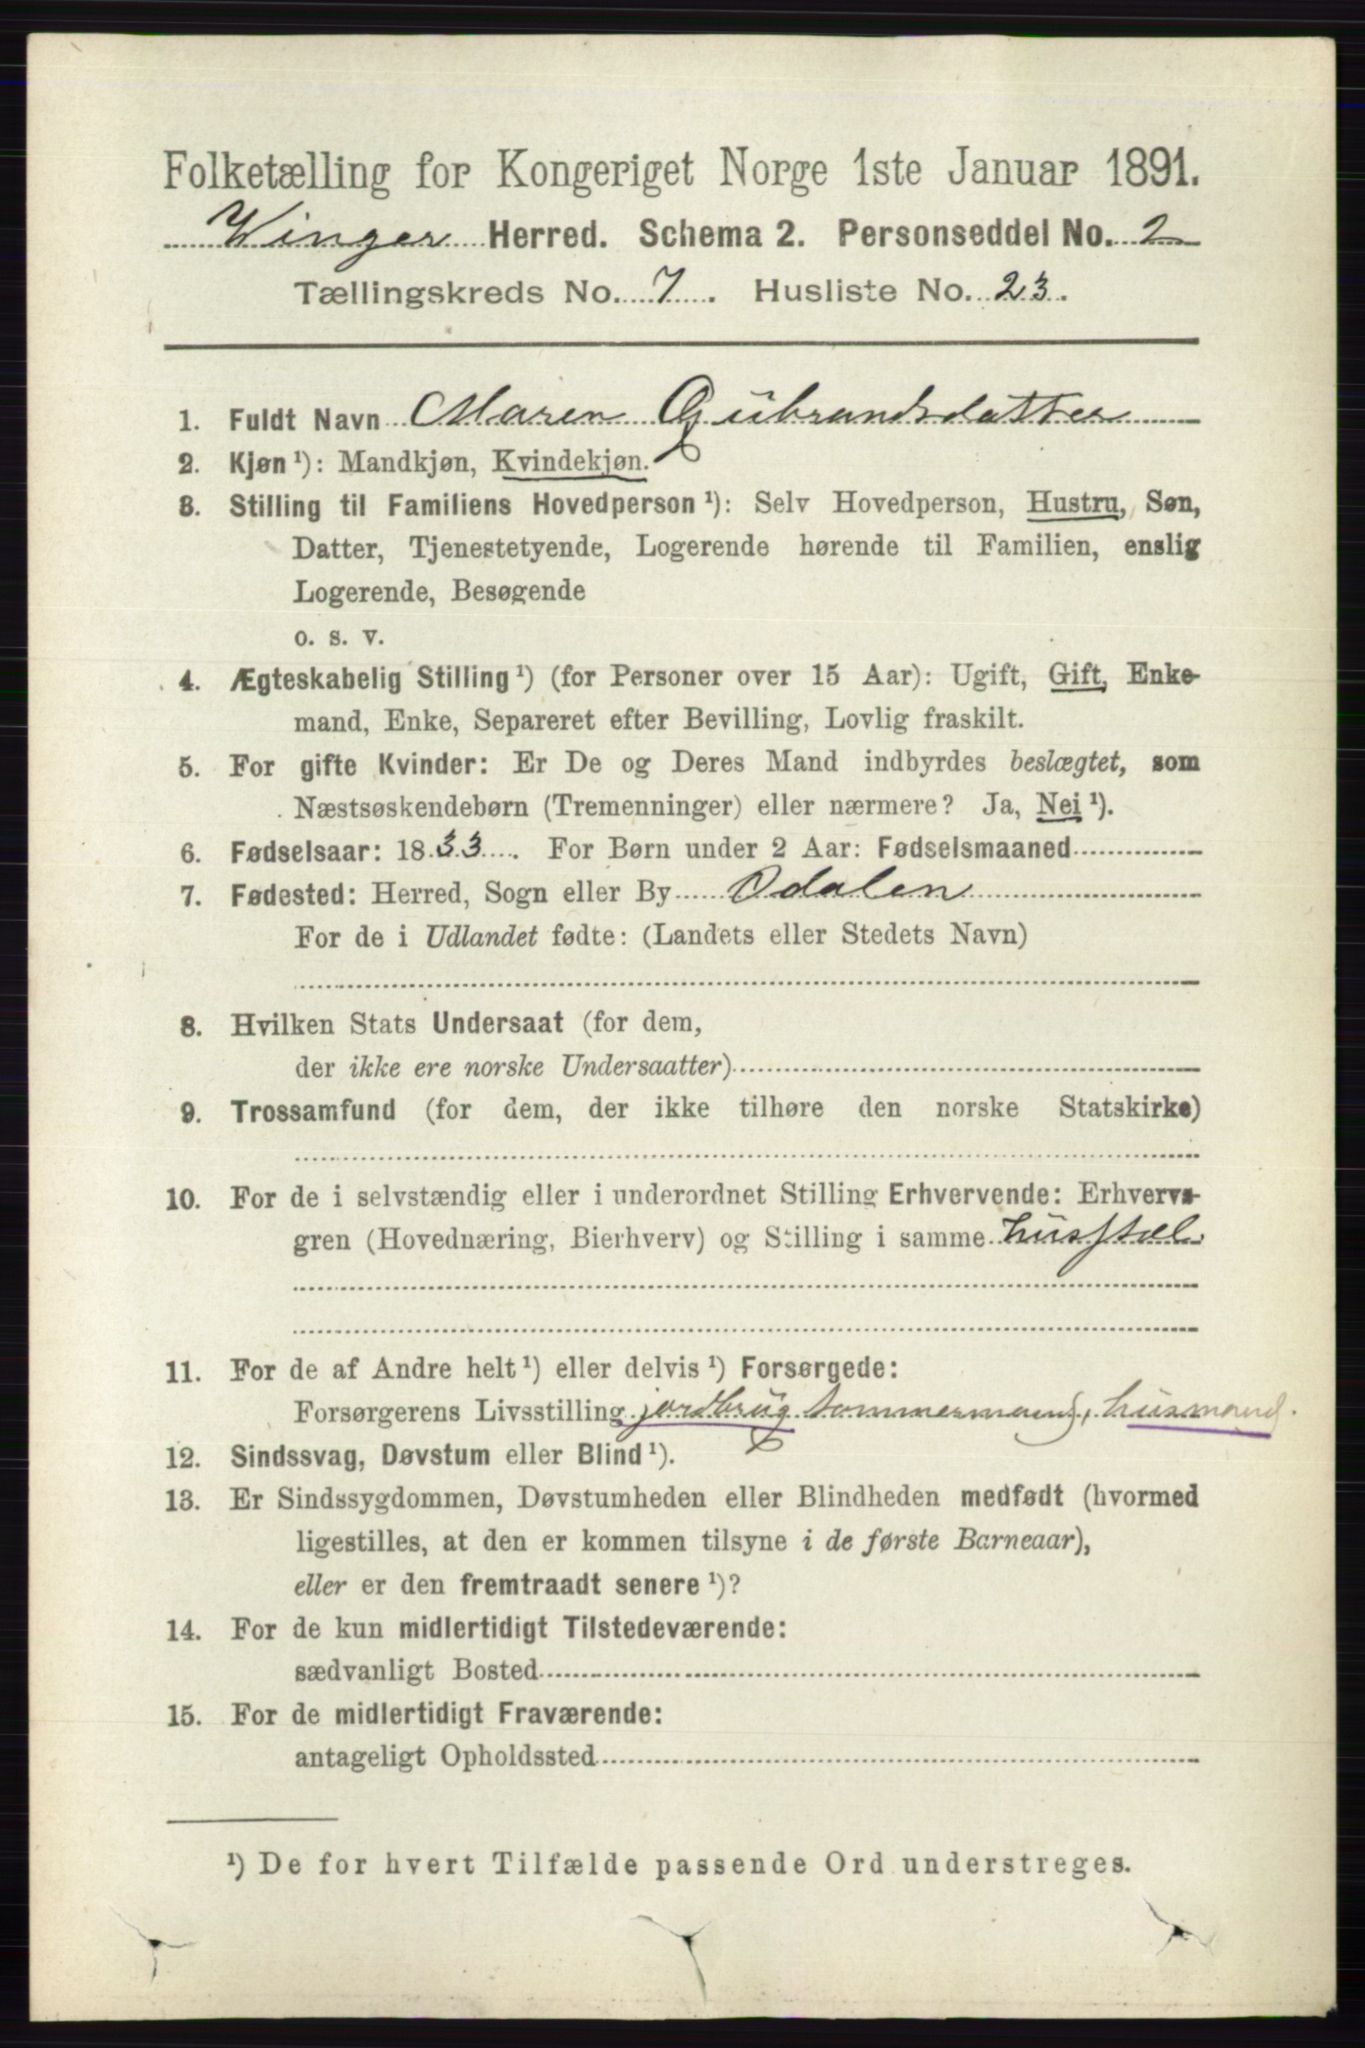 Folketælling for Kongeriget Norge 1ste Januar 1891.
Winger Herred. Schema 2. Personseddel No. 2
Tællingskreds No. 7. Husliste No. 23.
1. Fuldt Navn Maren Gübrandsdatter
2. Kjøn¹): Mandkjøn, Kvindekjøn.
3. Stilling til Familiens Hovedperson¹): Selv Hovedperson, Hustru, Søn,
Datter, Tjenestetyende, Logerende hørende til Familien, enslig
Logerende, Besøgende
o. s. v.
4. Ægteskabelig Stilling¹) (for Personer over 15 Aar): Ugift, Gift, Enke-
mand, Enke, Separeret efter Bevilling, Lovlig fraskilt.
5. For gifte Kvinder: Er De og Deres Mand indbyrdes beslægtet, som
Næstsøskendebørn (Tremenninger) eller nærmere? Ja, Nei¹).
6. Fødselsaar: 1833. For Børn under 2 Aar: Fødselsmaaned
7. Fødested: Herred, Sogn eller By Odalen
For de i Udlandet fødte: (Landets eller Stedets Navn)
8. Hvilken Stats Undersaat (for dem,
der ikke ere norske Undersaatter)
9. Trossamfund (for dem, der ikke tilhøre den norske Statskirke)
10. For de i selvstændig eller i underordnet Stilling Erhvervende: Erhvervs-
gren (Hovednæring, Bierhverv) og Stilling i samme husstel
11. For de af Andre helt¹) eller delvis¹) Forsørgede:
Forsørgerens Livsstilling jordbrüg tømmermand, husmand.
12. Sindssvag, Døvstum eller Blind¹).
13. Er Sindssygdommen, Døvstumheden eller Blindheden medfødt (hvormed
ligestilles, at den er kommen tilsyne i de første Barneaar),
eller er den fremtraadt senere¹)?
14. For de kun midlertidigt Tilstedeværende:
sædvanligt Bosted
15. For de midlertidigt Fraværende:
antageligt Opholdssted
¹) De for hvert Tilfælde passende Ord understreges.